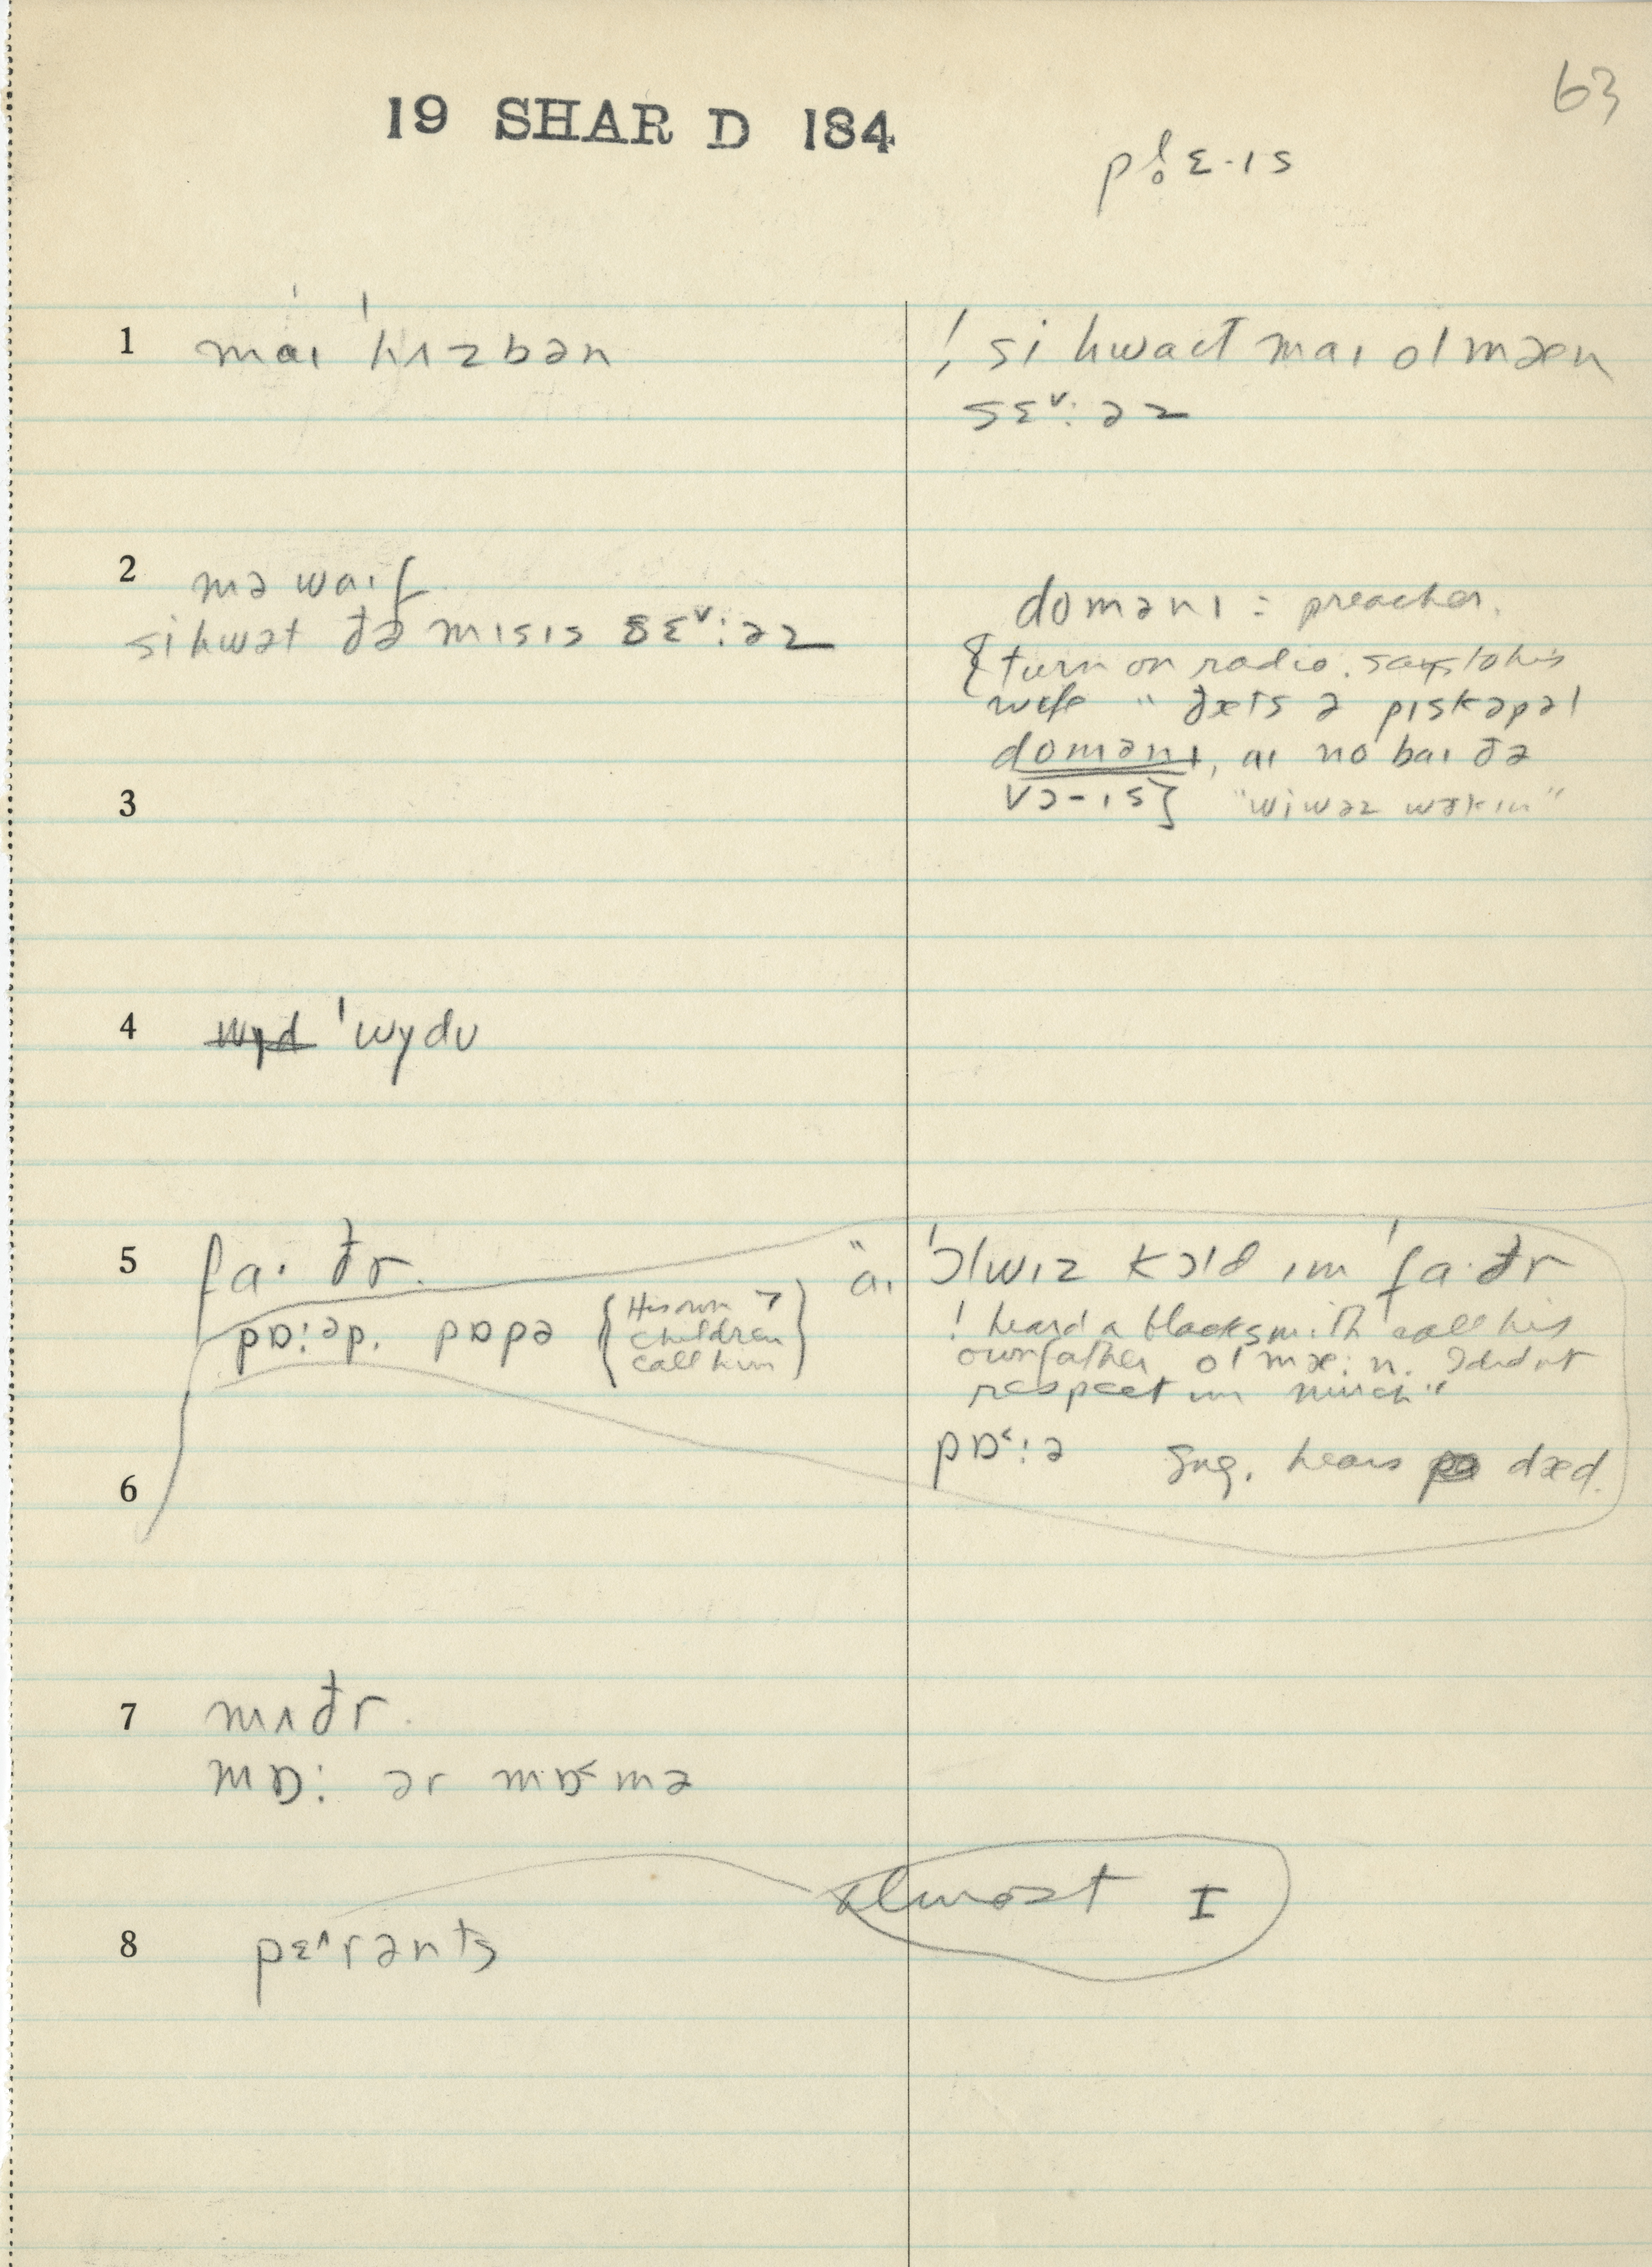 63
19 SHAR D 184
pl̥ɛ·ɪs
1 maɪ ˈhʌzbən
! si hwaət maɪ ol mæn
sɛ˅ːəz
2 mə waɪf
si hwət đə mɪsɪs sɛ˅ːəz
domənɪ = preacher.
{turn on radio. says to his
wife " đæts ə pɪskəpəl
domənɪ, aɪ no baɪ đə
vɔ-ɪs} "wi wəz wəkɪn"
3
4 wyd ˈwydʊ
5 fa· đr.
pɒːəp. pɒpə {His own
children
call him}
"aɪ ˈɔlwɪz kɔld ɪm ˈfa·đr
! heard a blacksmith call his
own father ol mæːn. I didnt
respect im much"
pɒ˂ːə Sug. hears dæd.
6
7 mʌđr.
mɒː ər mɒ˂mə
almost I
8 pɛ˄rənts